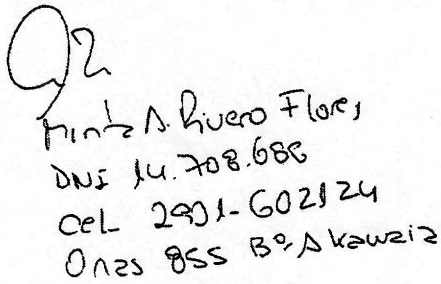 Mirta A. Rivero Flores
DNI 14.708.686
Cel 2901-602124
Onas 855 Bº Akawaia